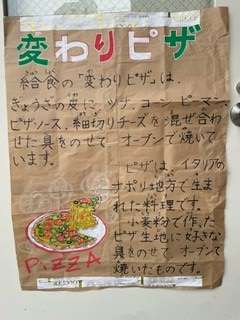 変わりピザ
給食の「変わりピザ」は、
きょうざの皮に、ツナ、コーン、ピーマン、
ピザソース、細切りチーズを混ぜ合わ
せた具をのせて、オーブンで焼いて
います。
ピザは、イタリアの
ナポリ地方で生ま
れた料理です。
小麦粉で作った
ピザ生地に好きな
具をのせて、オーブンで
焼いたものです。
PIZZA